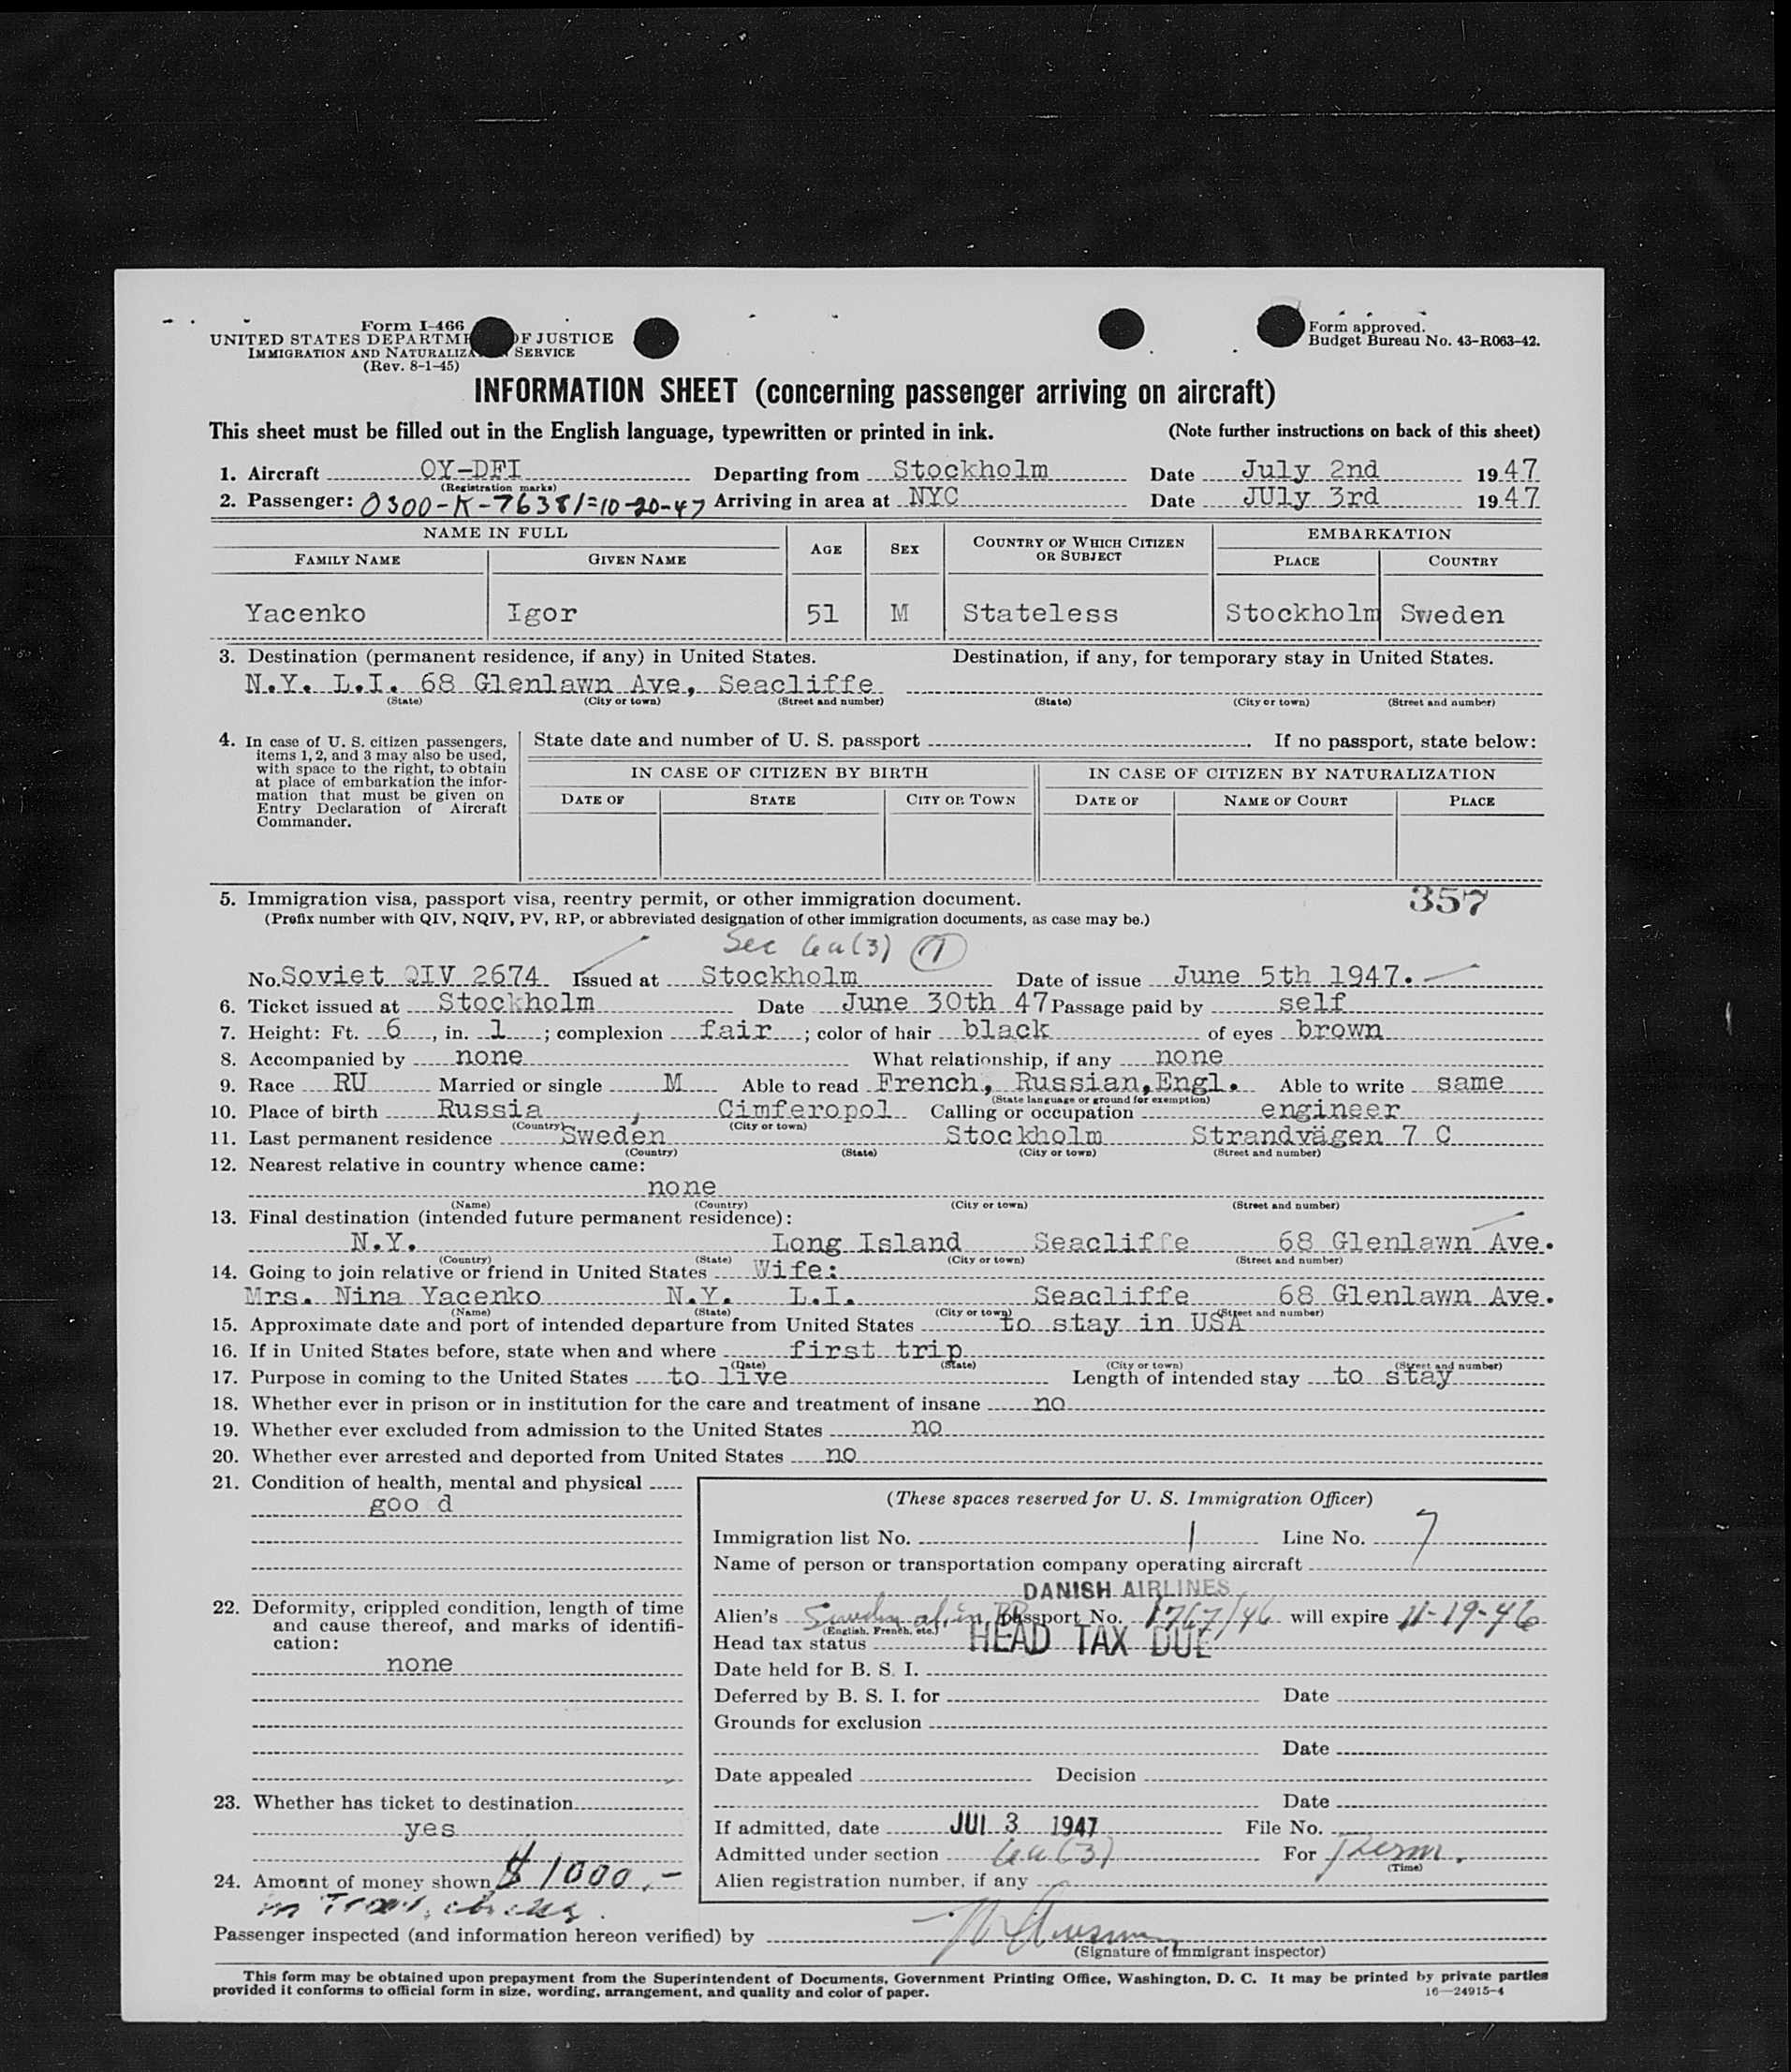 Form I-466
UNITED STATES DEPARTME OF JUSTICE
IMMIGRATION AND NATURALIZA SERVICE
(Rev. 8-1-45)
Form approved.
Budget Bureau No. 43-R063-42.
INFORMATION SHEET (concerning passenger arriving on aircraft)
This sheet must be filled out in the English language, typewritten or printed in ink. (Note further instructions on back of this sheet)
1. Aircraft OY-DFI Departing from Stockholm Date July 2nd 1947
(Registration marks)
2. Passenger: 0300-K-76381=10-20-47 Arriving in area at NYC Date JUly 3rd 1947
NAME IN FULL AGE SEX COUNTRY OF WHICH CITIZEN OR SUBJECT EMBARKATION
FAMILY NAME GIVEN NAME PLACE COUNTRY
Yacenko Igor 51 M Stateless Stockholm Sweden
3. Destination (permanent residence, if any) in United States. Destination, if any, for temporary stay in United States.
N.Y. L.I. 68 Glenlawn Ave, Seacliffe
(State) (City or town) (Street and number) (State) (City or town) (Street and number)
4. In case of U. S. citizen passengers,
items 1, 2, and 3 may also be used,
with space to the right, to obtain
at place of embarkation the infor-
mation that must be given on
Entry Declaration of Aircraft
Commander.
State date and number of U. S. passport . If no passport, state below:
IN CASE OF CITIZEN BY BIRTH IN CASE OF CITIZEN BY NATURALIZATION
DATE OF STATE CITY OR TOWN DATE OF NAME OF COURT PLACE
5. Immigration visa, passport visa, reentry permit, or other immigration document. 357
(Prefix number with QIV, NQIV, PV, RP, or abbreviated designation of other immigration documents, as case may be.)
Sec 6a(3)
No. Soviet QIV 2674 Issued at Stockholm Date of issue June 5th 1947.
6. Ticket issued at Stockholm Date June 30th 47 Passage paid by self
7. Height: Ft. 6, in. 1; complexion fair; color of hair black of eyes brown
8. Accompanied by none What relationship, if any none
9. Race RU Married or single M Able to read French, Russian, Engl. Able to write same
(State language or ground for exemption)
10. Place of birth Russia, Cimferopol Calling or occupation engineer
(Country) (City or town)
11. Last permanent residence Sweden Stockholm Strandvägen 7 C
(Country) (State) (City or town) (Street and number)
12. Nearest relative in country whence came:
none
(Name) (Country) (City or town) (Street and number)
13. Final destination (intended future permanent residence):
N.Y. Long Island Seacliffe 68 Glenlawn Ave.
(Country) (State) (City or town) (Street and number)
14. Going to join relative or friend in United States Wife:
Mrs. Nina Yacenko N.Y. L.I. Seacliffe 68 Glenlawn Ave.
(Name) (State) (City or town) (Street and number)
15. Approximate date and port of intended departure from United States to stay in USA
16. If in United States before, state when and where first trip
(Date) (State) (City or town) (Street and number)
17. Purpose in coming to the United States to live Length of intended stay to stay
18. Whether ever in prison or in institution for the care and treatment of insane no
19. Whether ever excluded from admission to the United States no
20. Whether ever arrested and deported from United States no
21. Condition of health, mental and physical
goo d
22. Deformity, crippled condition, length of time
and cause thereof, and marks of identifi-
cation:
none
23. Whether has ticket to destination
yes
24. Amount of money shown $1000.-
in Trav.
(These spaces reserved for U. S. Immigration Officer)
Immigration list No. 1 Line No. 7
Name of person or transportation company operating aircraft
DANISH AIRLINES
Alien's Sweden alien passport No. 1767/46 will expire 11-19-46
(English, French, etc.)
Head tax status HEAD TAX DUE
Date held for B. S. I.
Deferred by B. S. I. for Date
Grounds for exclusion
Date
Date appealed Decision
Date
If admitted, date JUL 3 1947 File No.
Admitted under section 6a(3) For Perm.
(Time)
Alien registration number, if any
Passenger inspected (and information hereon verified) by
(Signature of immigrant inspector)
This form may be obtained upon prepayment from the Superintendent of Documents, Government Printing Office, Washington, D. C. It may be printed by private parties
provided it conforms to official form in size, wording, arrangement, and quality and color of paper. 16—24915-4